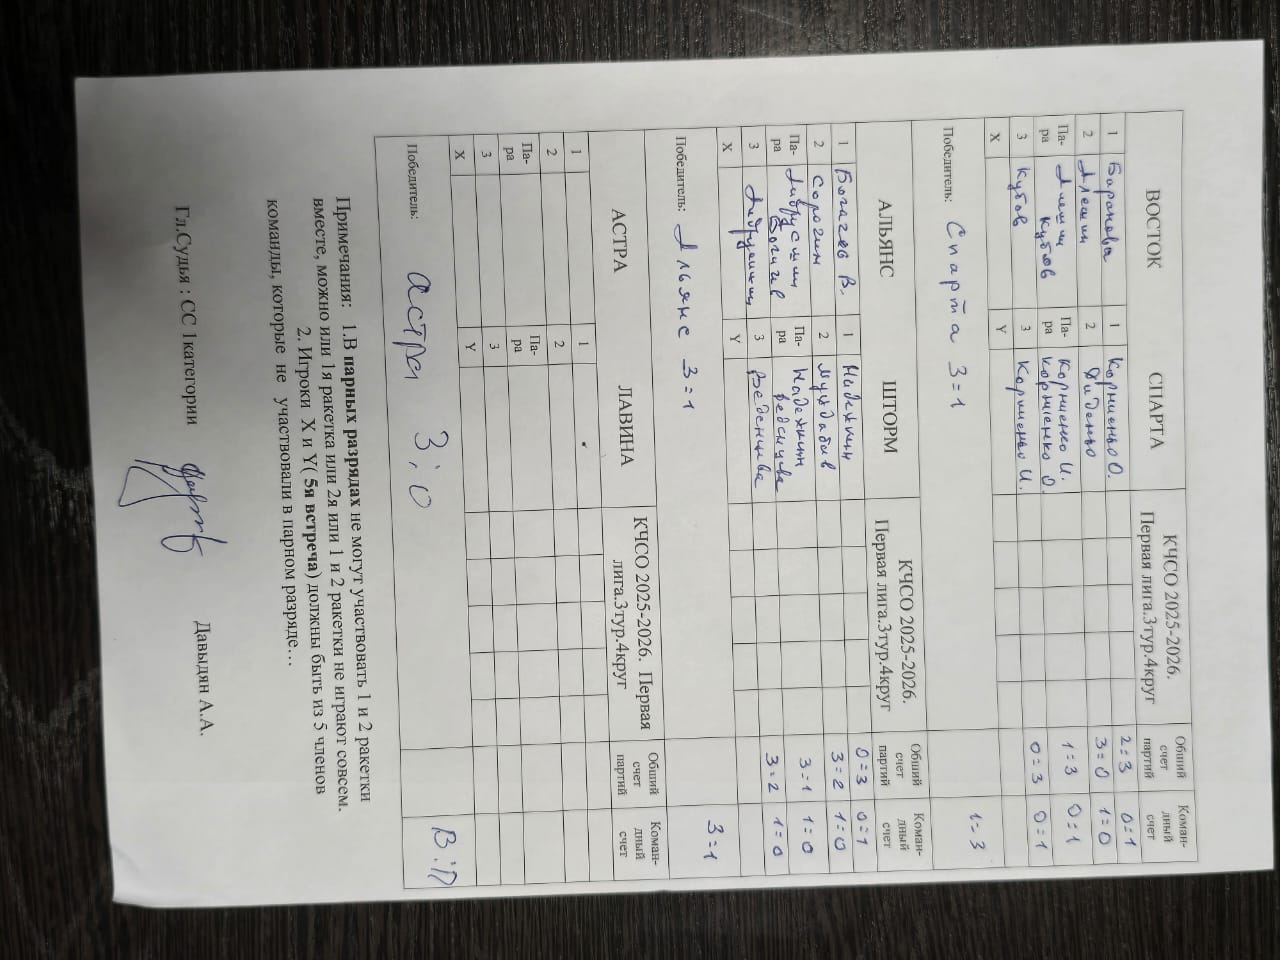 ВОСТОК СПАРТА КЧСО 2025-2026. Первая лига.3тур.4круг Общий счет партий Коман-дный счет
1 Баранова 1 Корниенко О. 2=3 0=1
2 Алешин 2 Диденко 3=0 1=0
Па-ра Алешин Кубов Па-ра Корниенко И. Корниенко О. 1=3 0=1
3 Кубов 3 Корниенко И. 0=3 0=1
X Y
Победитель: Спарта 3=1 1=3
АЛЬЯНС ШТОРМ КЧСО 2025-2026. Первая лига.3тур.4круг Общий счет партий Коман-дный счет
1 Богачев В. 1 Надежкин 0=3 0=1
2 Сорокин 2 3=2 1=0
Па-ра Па-ра Надежкин 3=1 1=0
3 3 3=2 1=0
X Y
Победитель: Альянс 3=1 3=1
АСТРА ЛАВИНА КЧСО 2025-2026. Первая лига.3тур.4круг Общий счет партий Коман-дный счет
1 1
2 2
Па-ра Па-ра
3 3
X Y
Победитель: Астра 3:0 В:П
Примечания: 1.В парных разрядах не могут участвовать 1 и 2 ракетки
вместе, можно или 1я ракетка или 2я или 1 и 2 ракетки не играют совсем.
2. Игроки X и Y( 5я встреча) должны быть из 5 членов
команды, которые не участвовали в парном разряде…
Гл.Судья : СС 1категории Давыдян А.А.